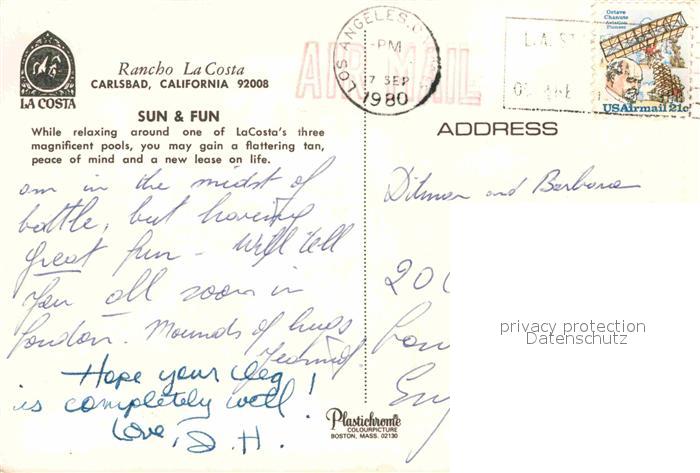 LA COSTA
Rancho La Costa
CARLSBAD, CALIFORNIA 92008
SUN & FUN
While relaxing around one of LaCosta's three
magnificent pools, you may gain a flattering tan,
peace of mind and a new lease on life.
am in the midst of
battle, but having
great fun - Will tell
you all soon in
London. Mounds of hugs
Hope your leg
is completely well!
Love, J. H.
Plastichrome
COLOURPICTURE
BOSTON, MASS. 02130
AIR MAIL
LOS ANGELES, C
PM
17 SEP
1980
L.A.
Octave
Chanute
Aviation
Pioneer
USAirmail 21c
ADDRESS
Ditmar and Barbara
200
privacy protection
Datenschutz